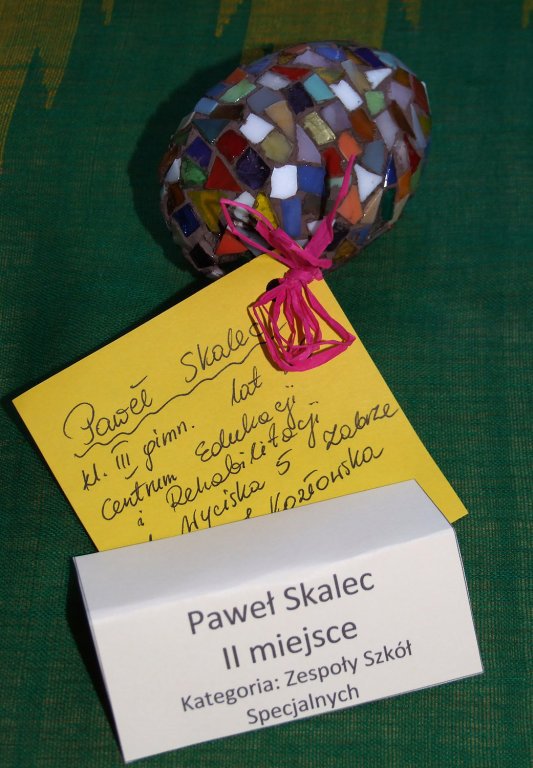 Paweł Skalec
kl. III gimn. lat
Centrum Edukacji
i Rehabilitacji
Myciska 5 Zabrze
Kozłowska
Paweł Skalec
II miejsce
Kategoria: Zespoły Szkół
Specjalnych